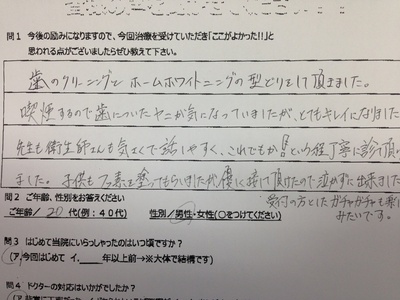 問1 今後の励みになりますので、今回治療を受けていただき「ここがよかった!!」と
思われる点がございましたらぜひ教えて下さい。
歯のクリーニングとホームホワイトニングの型どりをして頂きました。
喫煙するので歯についたヤニが気になっていましたが、とてもキレイになりました
先生も衛生師さんも気さくで話しやすく、これでもか!!という程丁寧に診て頂
ました。子供もフッ素を塗ってもらいましたが優しく接して頂けたので泣かずに出来ました
受付の方としたガチャガチャも
みたいです。
問2 ご年齢、性別をお答えください
ご年齢/20代(例:40代) 性別/男性・女性(○をつけてください)
問3 はじめて当院にいらっしゃったのはいつ頃ですか?
ア.今回はじめて イ.___年以上前→※大体で結構です)
問4 ドクターの対応はいかがでしたか?